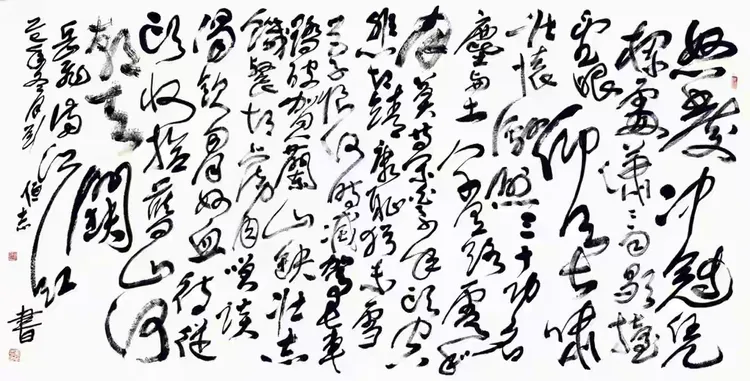 怒发冲冠凭
栏處潇潇雨歇抬
望眼仰天长啸
壮怀激烈三十功名
塵与土八千里路雲和
月莫等闲白了少年头空
悲切靖康耻犹未雪
臣子恨何时灭驾长车
踏破贺蘭山缺壮志
饥餐胡虏肉笑谈
渴饮匈奴血待从
头收拾舊山河
朝天阙
岳飛满江红
年冬月
書